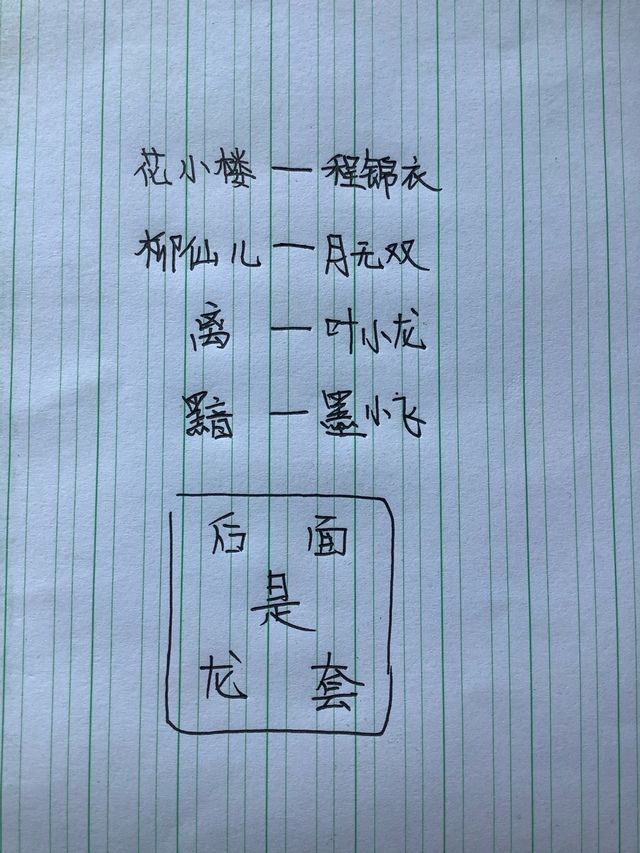 花小楼一程锦衣
柳仙儿一月无双
离一叶小龙
黯一墨小飞
后面
是
龙套